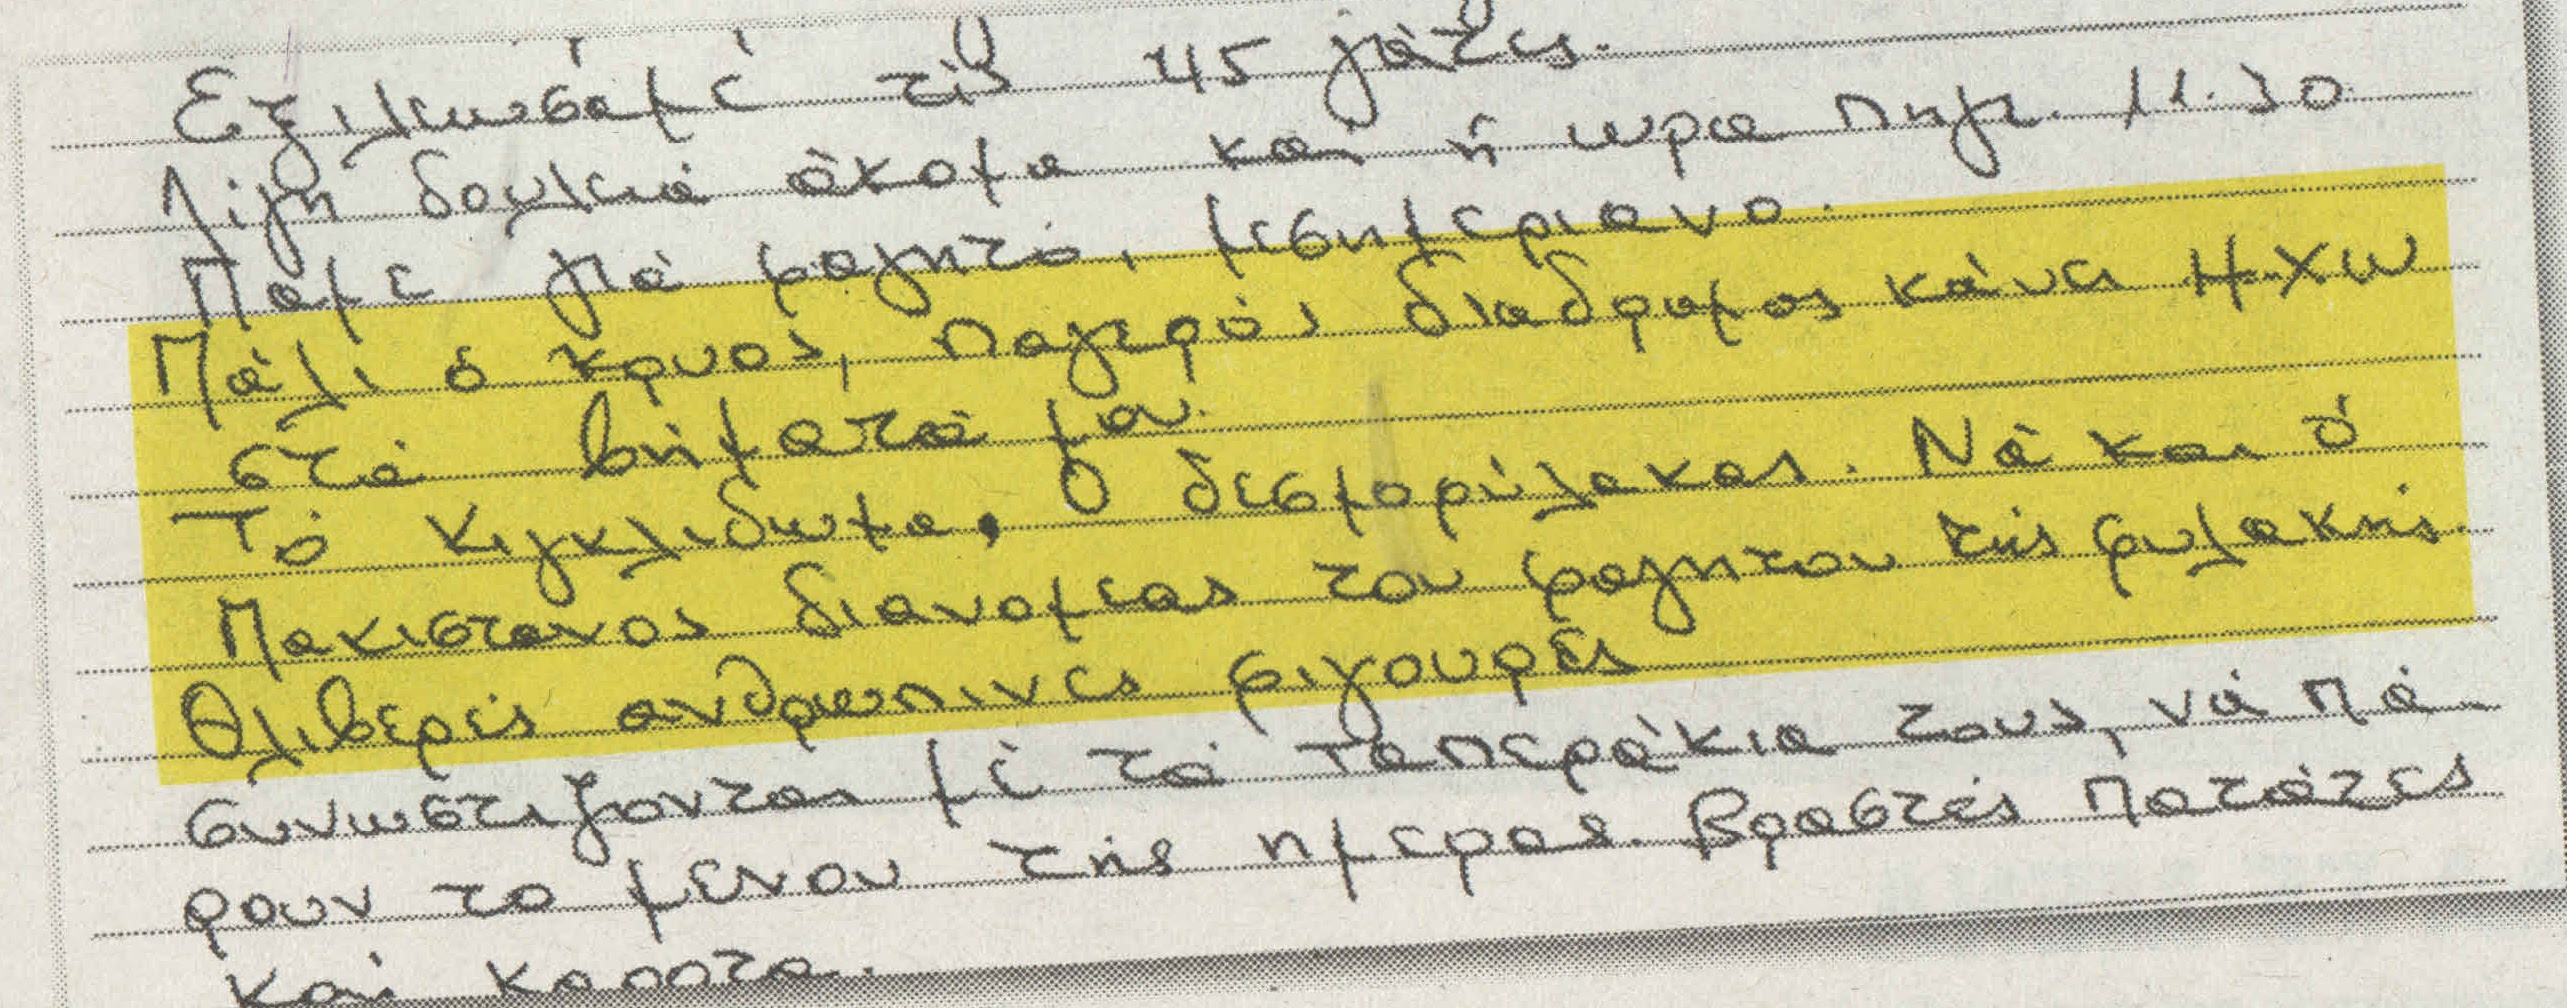 Εξιλεωσάμε τίς 45 γάτες.
Λίγη δουλειά άκομα καί ή ωρα πηγε. 11.30
Παμε γιά φαγητό, μεσημεριανο.
Πάλι ό κρυος, παγερός διαδρομος κάνει ΗΧΩ
στά βήματά μου.
Τό κιγκλιδωμα, Ο δεσμοφύλακας. Νά και ό
Πακιστανος διανομεας του φαγητου τής φυλακής.
Θλιβερές ανθρωπινες φιγουρές
συνωστιζονται μέ τά ταπεράκια τους, νά πά-
ρουν το μενου τής ημερας. Βραστές πατάτες
καί καροτα.